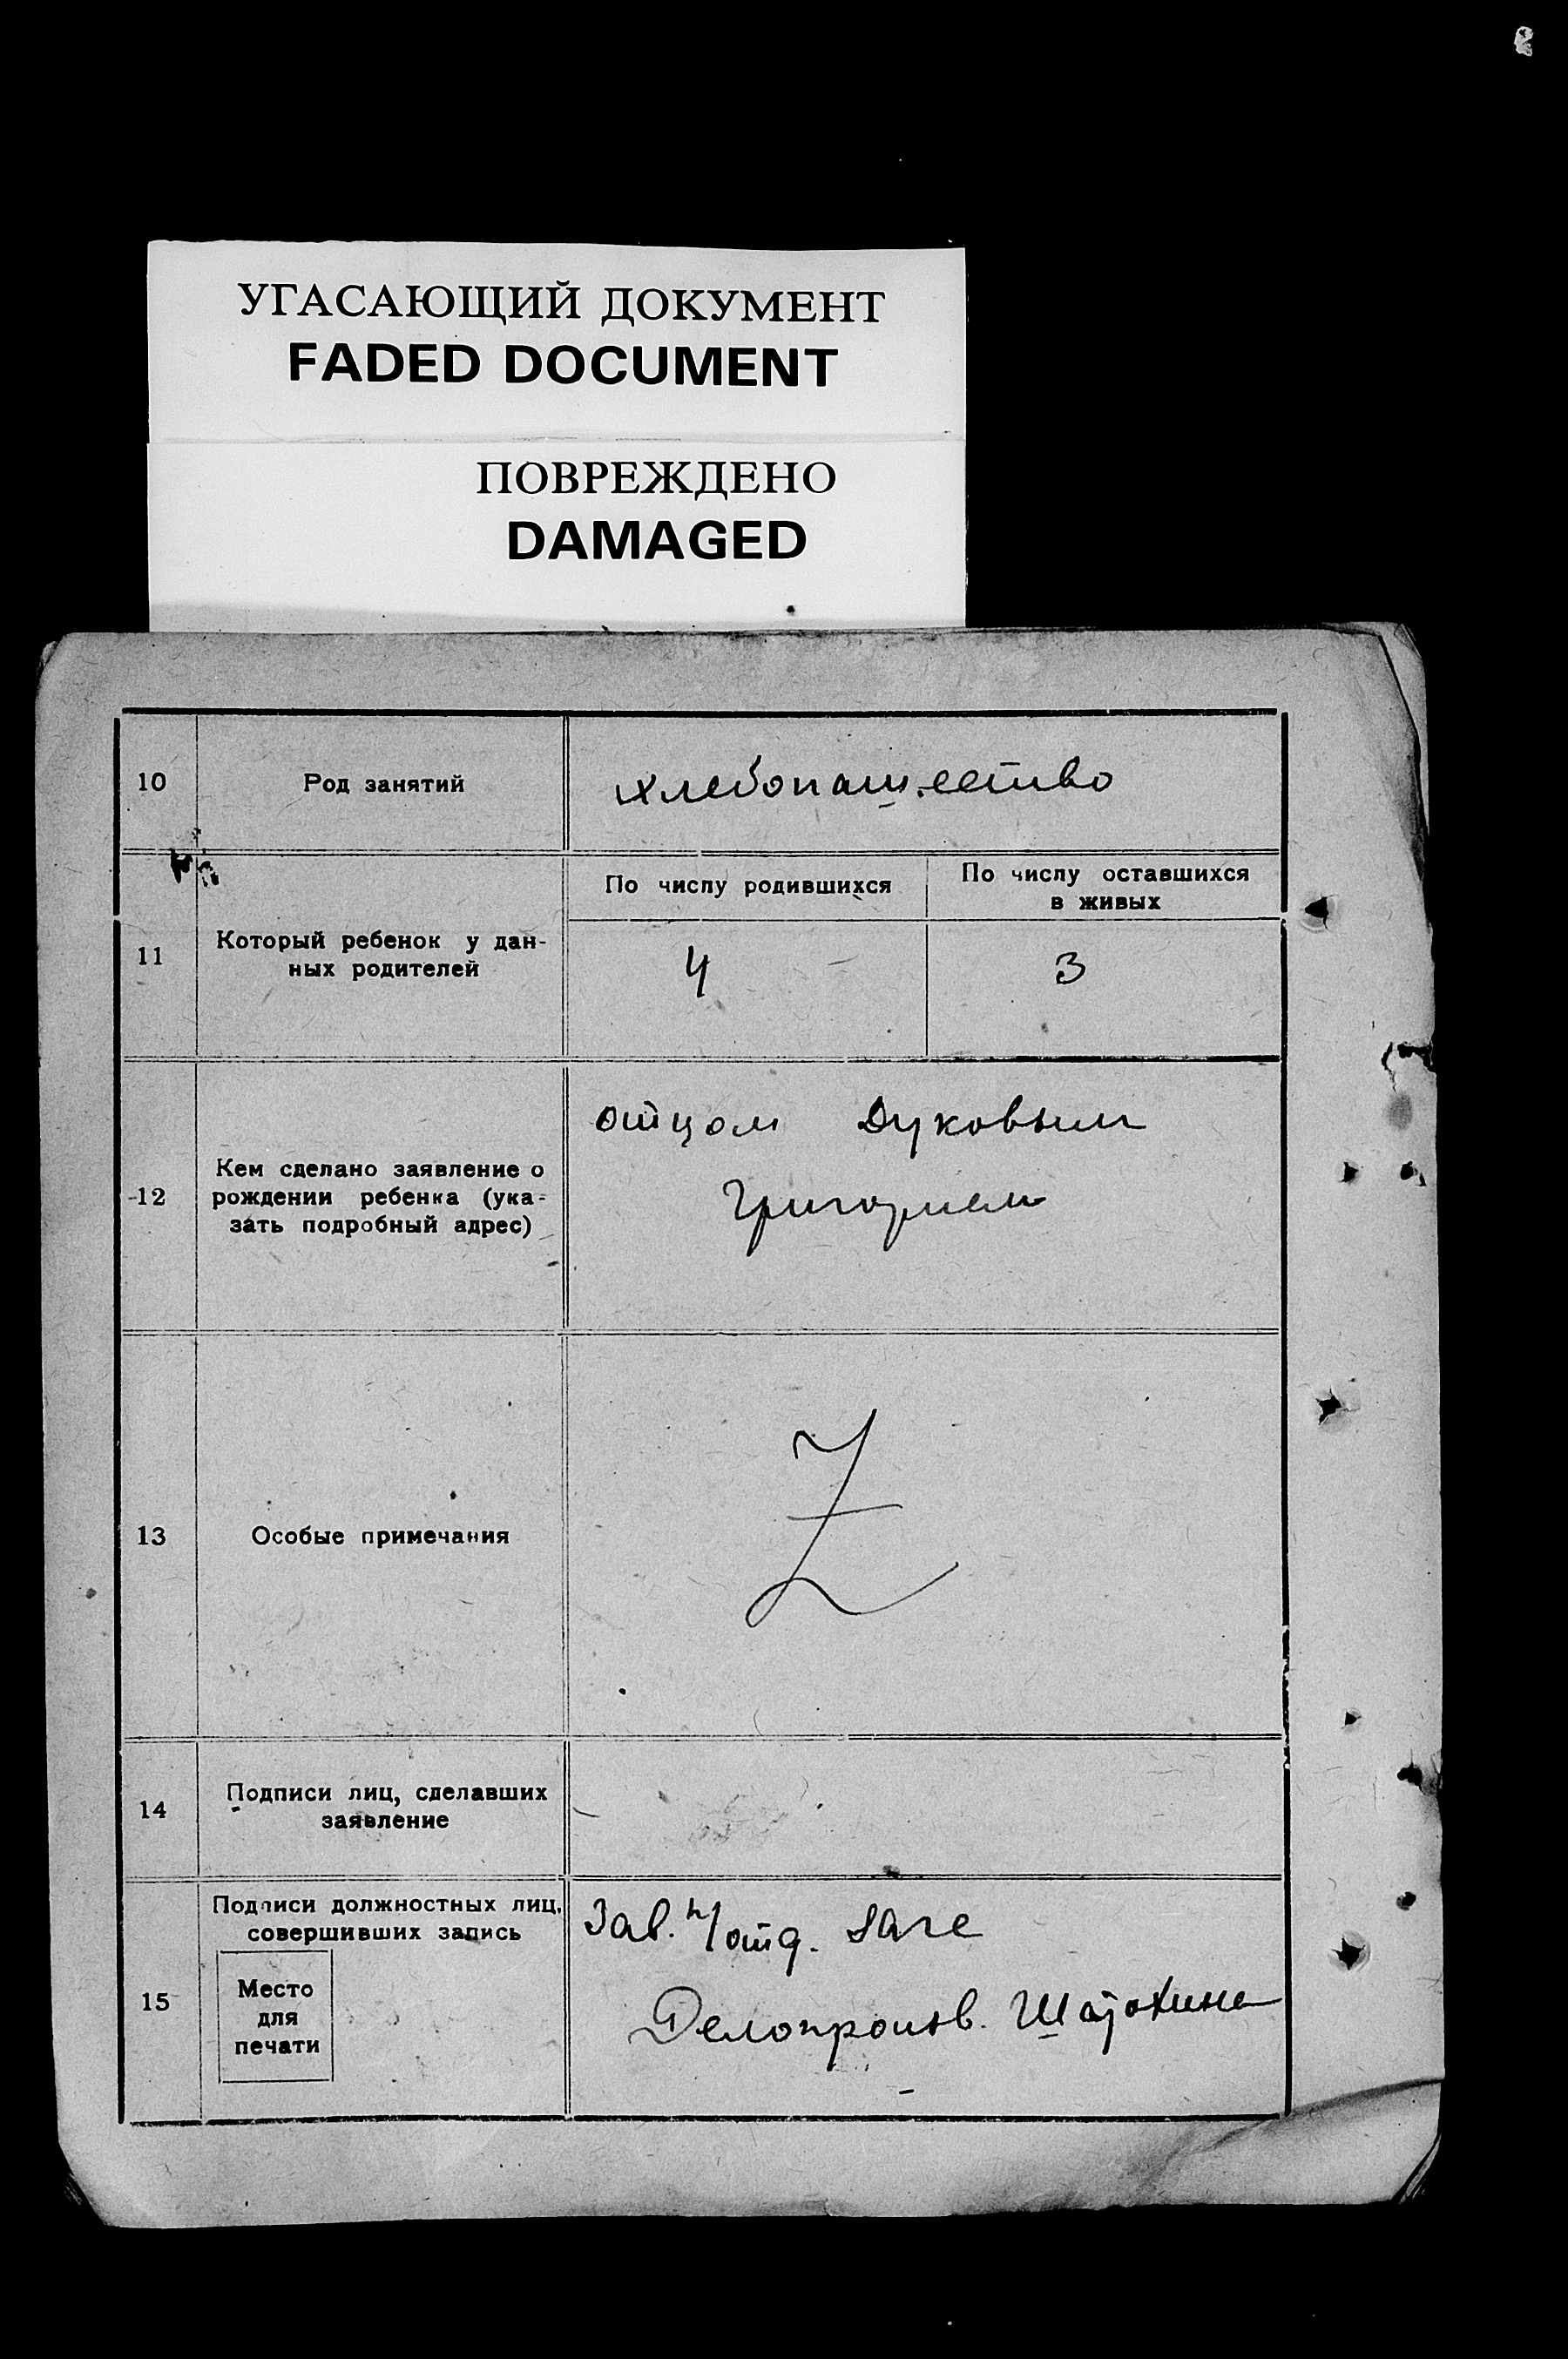 УГАСАЮЩИЙ ДОКУМЕНТ
FADED DOCUMENT
ПОВРЕЖДЕНО
DAMAGED
10 Род занятий хлебопашество
По числу родившихся По числу оставшихся
в живых
11 Который ребенок у дан-
ных родителей 4 3
отцом Дуковым
Григорием
12 Кем сделано заявление о
рождении ребенка (ука-
зать подробный адрес)
13 Особые примечания Z
14 Подписи лиц, сделавших
заявление
Подписи должностных лиц,
совершивших запись
Зав. п/отд.
15 Место
для
печати
Делопроизв. Шатохина